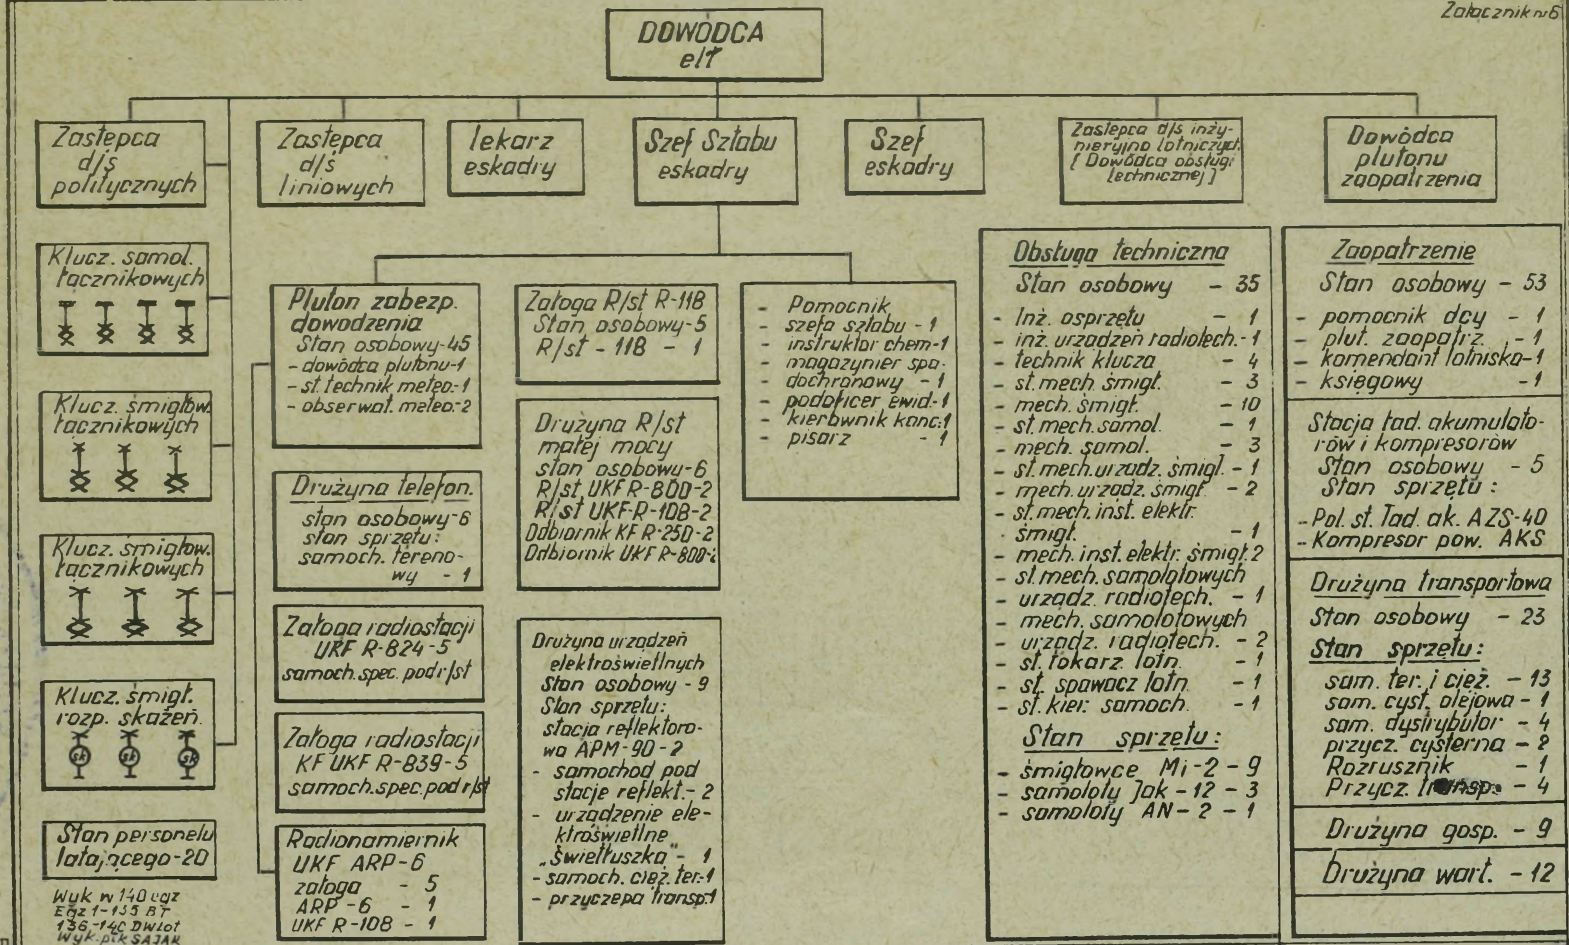 Załącznik nr 6
DOWÓDCA
elt
Zastępca
d/s
politycznych
Zastępca
d/s
liniowych
lekarz
eskadry
Szef Sztabu
eskadry
Szef
eskadry
Zastępca d/s inży-
nieryjno lotniczych
[Dowódca obsługi
technicznej]
Dowódca
plutonu
zaopatrzenia
Klucz. samol.
łącznikowych
Klucz. śmigłow.
łącznikowych
Klucz. śmigłow.
łącznikowych
Klucz. śmigł.
rozp. skażeń.
sk sk sk
Stan personelu
latającego-20
Wyk w 140 egz
Egz 1-135 BT
136-140 DWLot
Wyk. płk SAJAK
Pluton zabezp.
dowodzenia
Stan osobowy-45
- dowódca plutonu-1
- st. technik meteo.-1
- obserwat. meteo.-2
Drużyna telefon.
stan osobowy-6
stan sprzętu:
samoch. tereno-
wy - 1
Załoga radiostacji
UKF R-824-5
samoch. spec. pod r/st
Załoga radiostacji
KF UKF R-839-5
samoch. spec. pod r/st
Radionamiernik
UKF ARP-6
załoga - 5
ARP-6 - 1
UKF R-108 - 1
Załoga R/st R-118
Stan osobowy-5
R/st - 118 - 1
Drużyna R/st
małej mocy
stan osobowy-6
R/st UKF R-800-2
R/st UKF-R-108-2
Odbiornik KF R-250-2
Odbiornik UKF R-800-2
Drużyna urządzeń
elektroświetlnych
Stan osobowy - 9
Stan sprzętu:
stacja reflektoro-
wa APM-90-2
- samochod pod
stacje reflekt.-2
- urządzenie ele-
ktroświetlne
„Świetłuszka" - 1
- samoch. cięż. ter.-1
- przyczepa transp.1
- Pomocnik
- szefa sztabu - 1
- instruktor chem-1
- magazynier spa-
- dochronowy - 1
- podoficer ewid.-1
- kierownik kanc.1
- pisarz - 1
Obsługa techniczna
Stan osobowy - 35
- Inż. osprzętu - 1
- inż. urządzeń radiotech.-1
- technik klucza - 4
- st. mech. śmigł. - 3
- mech. śmigł. - 10
- st. mech. samol. - 1
- mech. samol. - 3
- st. mech. urządz. śmigł. - 1
- mech. urządz. śmigł. - 2
- st. mech. inst. elektr.
śmigł. - 1
- mech. inst. elektr. śmigł. 2
- st. mech. samolotowych
- urządz. radiotech. - 1
- mech. samolotowych
- urządz. radiotech. - 2
- st. tokarz lotn. - 1
- st. spawacz lotn - 1
- st. kier. samoch. - 1
Stan sprzętu:
- śmigłowce Mi-2 - 9
- samoloty Jak - 12 - 3
- samoloty AN - 2 - 1
Zaopatrzenie
Stan osobowy - 53
- pomocnik dcy - 1
- plut. zaopatrz. - 1
- komendant lotniska-1
- księgowy - 1
Stacja ład. akumulato-
rów i kompresorów
Stan osobowy - 5
Stan sprzętu:
- Pol. st. ład. ak. AZS-40
- Kompresor pow. AKS
Drużyna transportowa
Stan osobowy - 23
Stan sprzętu:
sam. ter. i cięż. - 13
sam. cyst. olejowa - 1
sam. dystrybutor - 4
przycz. cysterna - 2
Rozrusznik - 1
Przycz. transp. - 4
Drużyna gosp. - 9
Drużyna wart. - 12